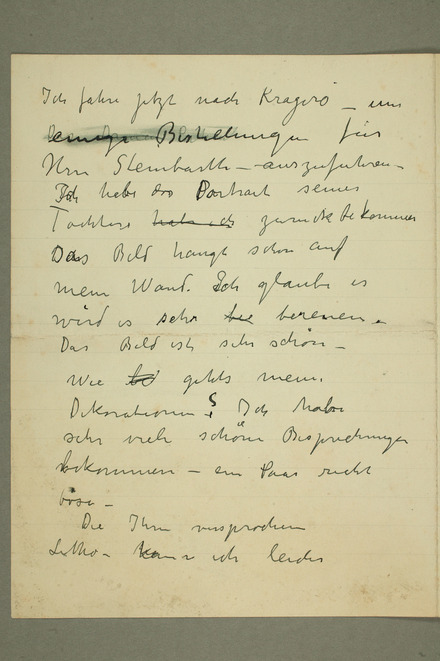 Ich fahre jetzt nach Kragerö – um
einige Bestellungen für
Hrn Steinbarth – auszuführen –
Ich habe das Portrait seiner
Tochter hab ich zurückbekommen
Das Bild hängt schon auf
mein Wand. Ich glaube es
wird es sehr bereuen.
Das Bild ist sehr schön –
Wie gehts mein
Dekorationen? Ich habe
sehr viele schöne Besprechungen
bekommen – ein Paar recht
böse –
Die Ihm versprochen
Litho – kann ich leider